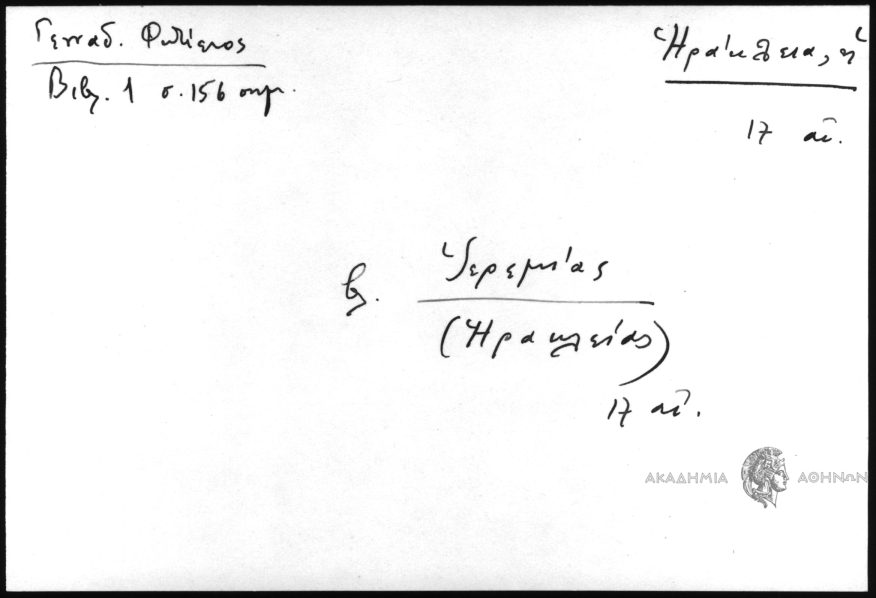 Γενναδ. Φωτίειος
Βιβλ. 1 σ. 156 σημ.
Ἡράκλεια, ἡ
17 αἰ.
βλ. Ἱερεμίας
(Ἡρακλείας)
17 αἰ.
ΑΚΑΔΗΜΙΑ ΑΘΗΝΩΝ